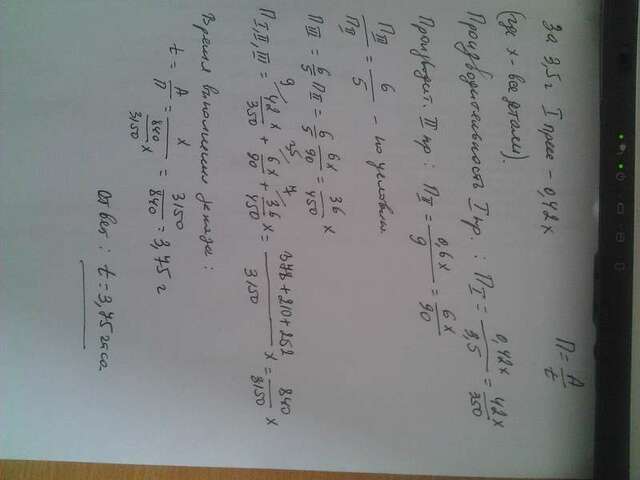 За 3,5 г I пресс – 0,42x
П = A/t
(где x – все детали).
Производительность I пр.: П_I = 0,42x/3,5 = 42x/350
Производит. II пр: П_II = 0,6x/9 = 6x/90
П_III/П_II = 6/5 – по условию.
П_III = 6/5 П_II = 6/5 · 6x/90 = 36/450 x
П_I,II,III = 9/ 42x/350 + 35/ 6x/90 + 7/ 36x/450 = 378+210+252/3150 x = 840/3150 x
Время выполнения заказа:
t = A/П = x / 840/3150 x = 3150/840 = 3,75 г
Ответ: t = 3,75 часа